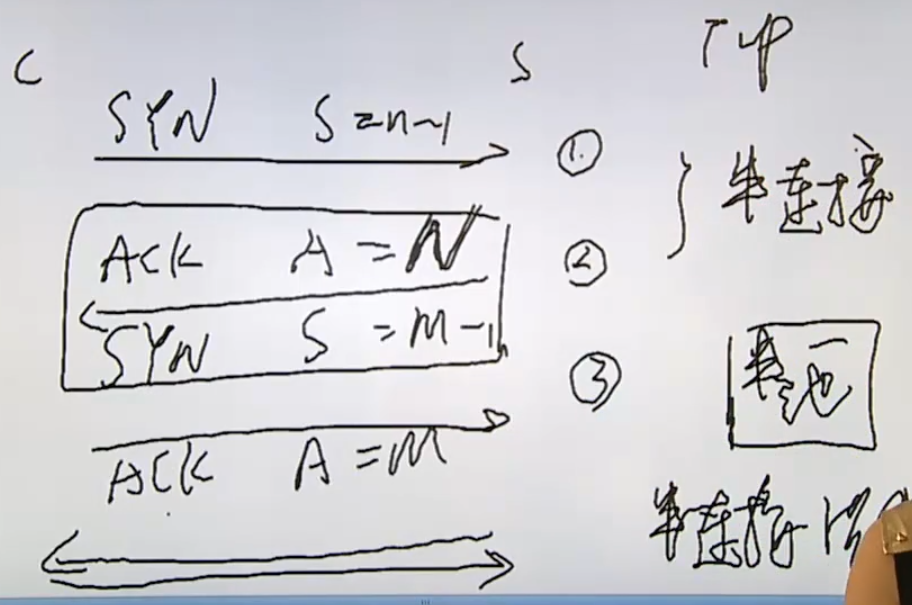 C S TCP
SYN S=n-1 ①
半连接
ACK A=N ②
SYN S=M-1
③
半池
ACK A=M
半连接